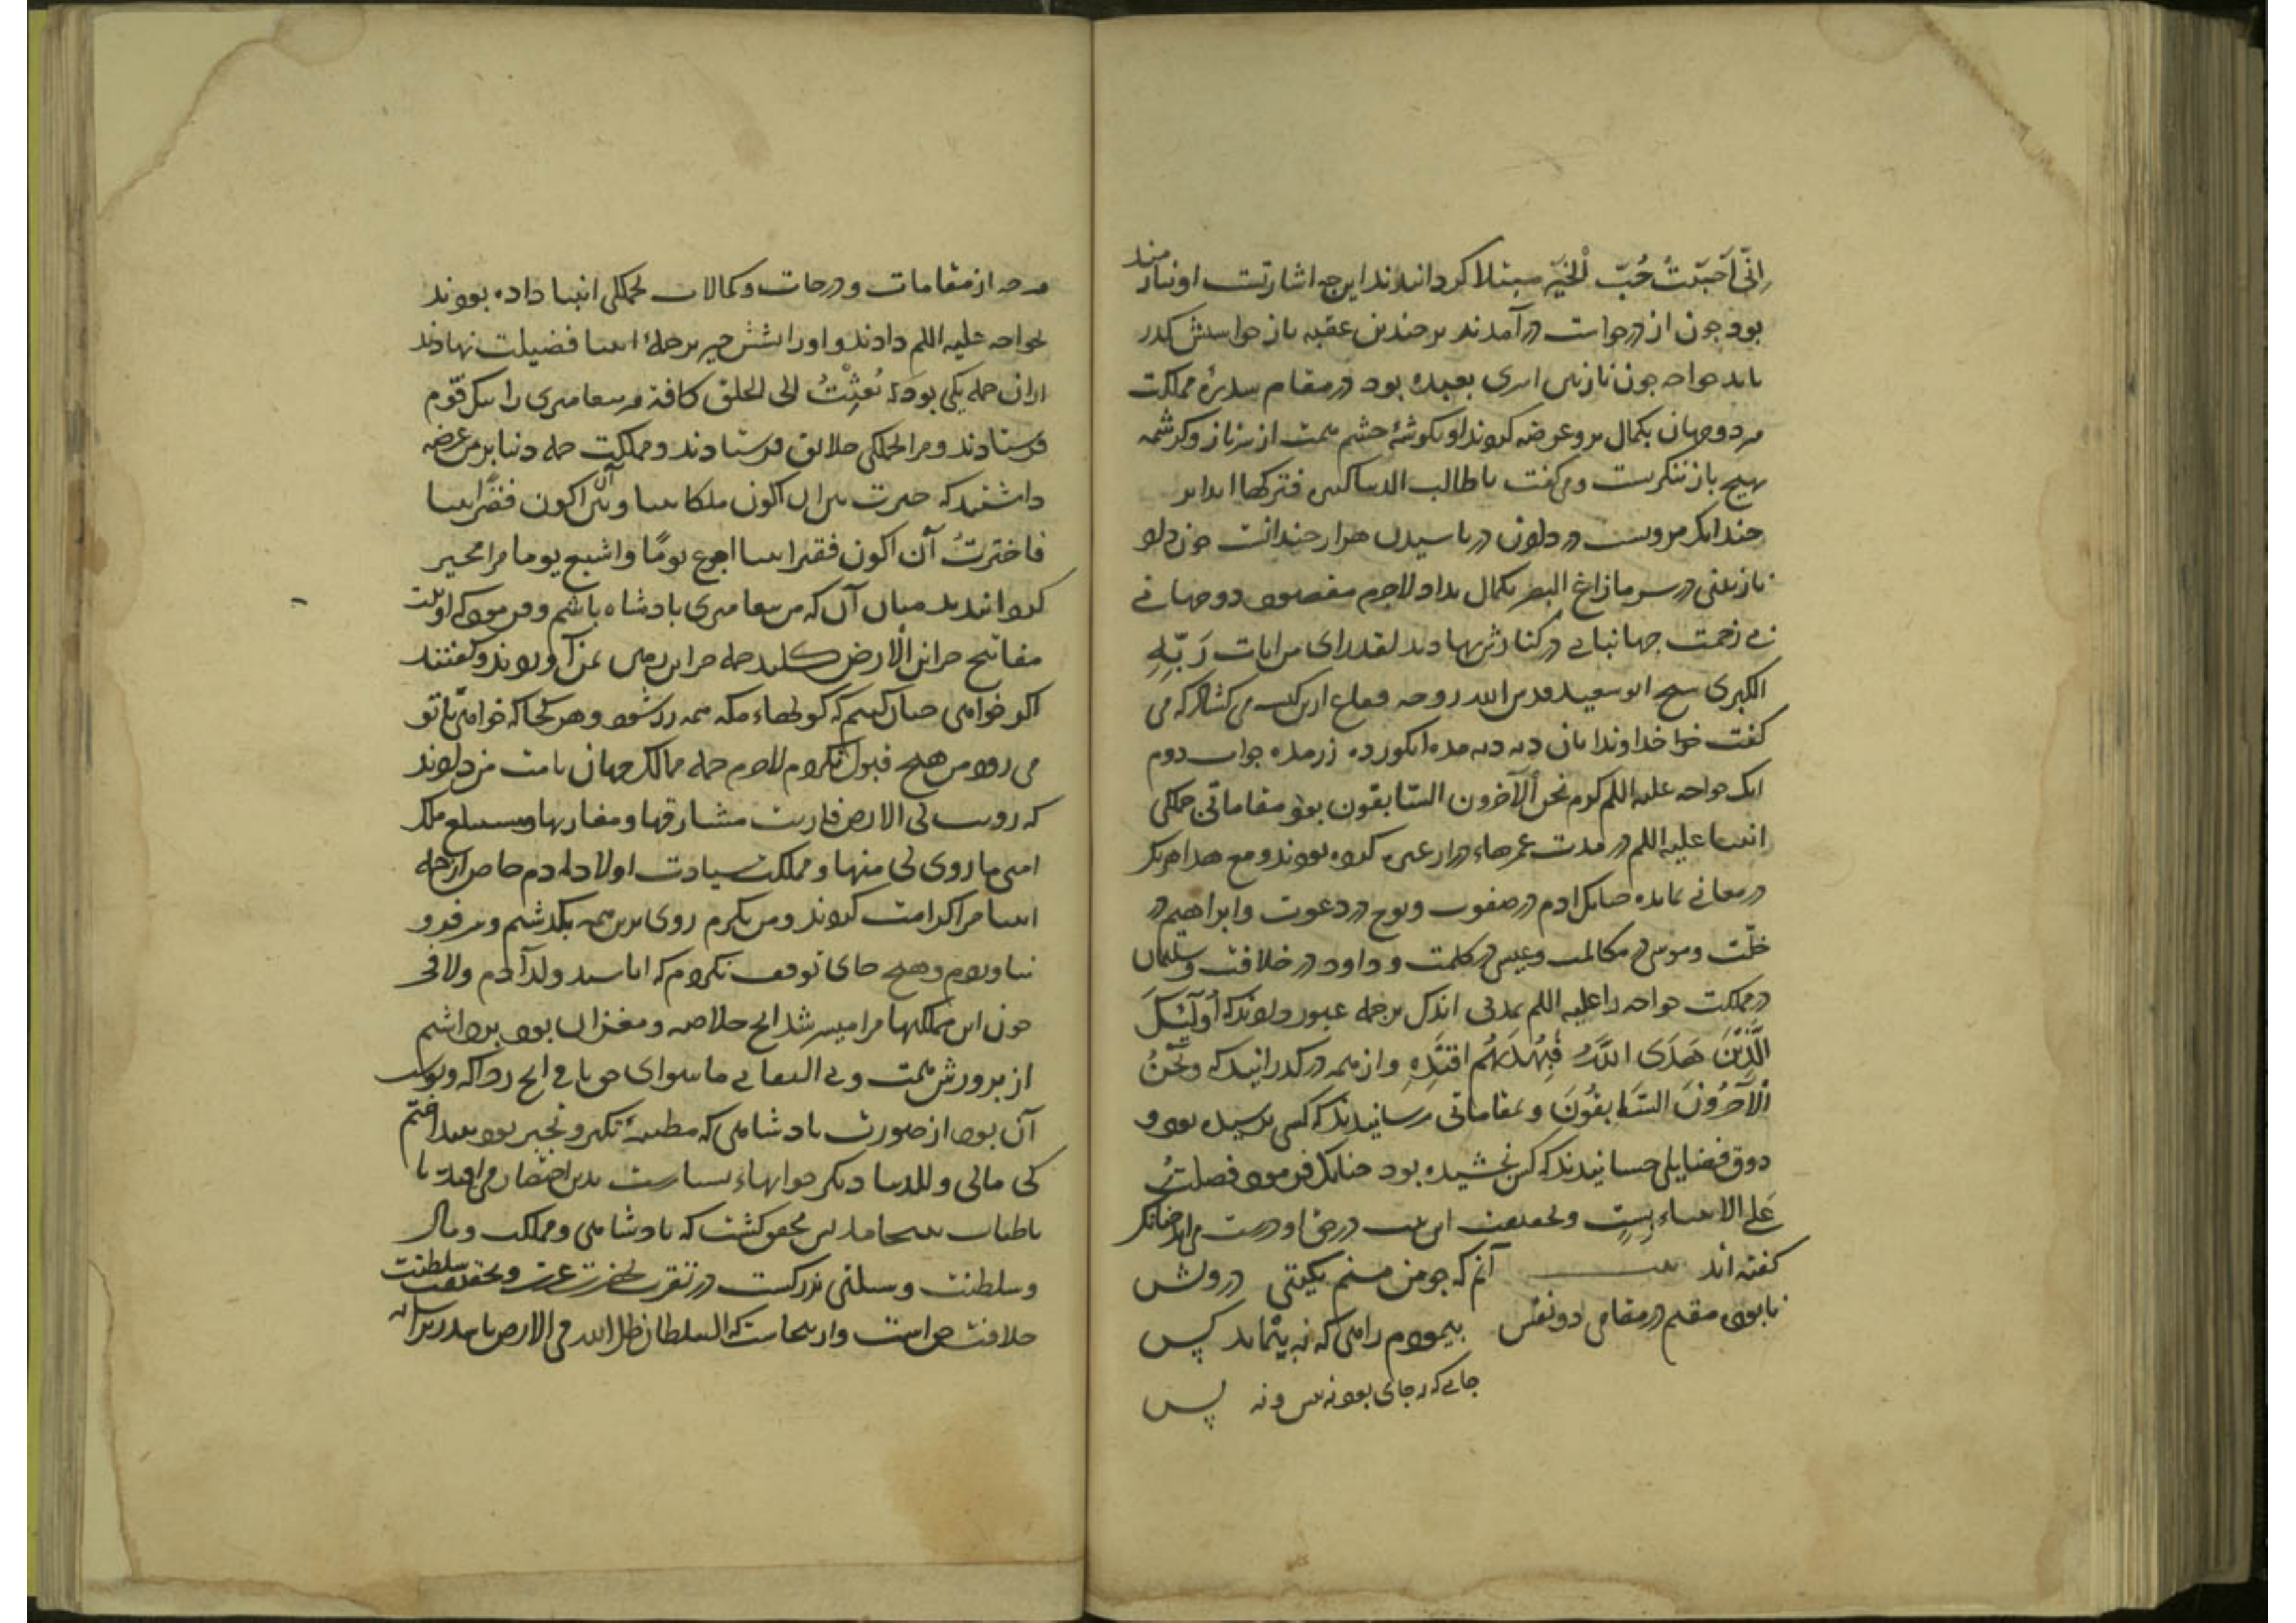 انّی اَحبَبتُ حُبّ الْخَیر مبتلا کردانیدند این چه اشارتست او نیازمند
بود چون از در خواست درآمدند بر چندین عقبه باز خواستش کدر
باید خواجه چون نازنین اسری بعبده بود در مقام سدره مملکت
هر دو جهان بکمال برو عرضه کردند او بکوشهٔ چشم همت از سر ناز و کرشمه
بهیچ باز ننکریست و می کفت یا طالب الدنیا
چندانک مروست در دلون دریا سیدن هزار چندانست چون دلو
نازنینی در سر ما زاغ البصر بکمال بداد لاجرم مقصود دوجهانی
بی زحمت جهانبانی در کنارش نهادند لقد رای من ایات رَبّهِ
الکبری شیخ ابو سعید قدس الله روحه فقاع ازین کیسه می کشاد که می
کفت خواجه خداوندانان ده ده مده انکور ده زر مده جواب دوم
انک خواجه علیه اللم کرم نحن الآخرون السّابقون بود مقاماتی جملکی
انبیا علیه اللم در مدت عمرهاء دراز عبره کرده بودند و مع هذا هر یکر
در مقامی بمانده چنانک ادم در صفوت و نوح در دعوت و ابراهیم در
خلّت و موسی در مکالمت و عیسی در کلمت و داود در خلافت و سلیمان
در مملکت خواجه را علیه اللم بمدتی اندک بر جمله عبور دادند که اُولَئِکَ
الَّذِیْنَ هَدَی اللَّهُ فَبِهُدَیهُم اقْتَدِهِ و از همه در کذرانیدند که وَنَحْنُ
الْآخِرُوْنَ السَّابِقُوْنَ و بمقاماتی رسانیدند که کس نرسیده بود و
ذوق فضایلی چسانیدند که کس نچشیده بود چنانک فرمود فضلتُ
عَلَی الانبیاء بستٍ و بحقیقت این بیت در حق او درست می اید چنانک
کفته اند بیت آنم که چو من منم بکیتی در و بس
نابوده مقیم در مقامی دو نفس بپیمودم راهی که نه پیماید کس
جایی که نه جای بود نه پیش و نه پس
هرچه از مقامات و درجات و کمالات بجملکی انبیا داده بودند
بخواجه علیه اللم دادند و او را بشش چیز بر جملهٔ انبیا فضیلت نهادند
از ان جمله یکی بود که بُعِثْتُ الی الخلق کافة هر پیغامبری را بیک قوم
فرستادند و مرا بجملکی خلایق فرستادند و مملکت جمله دنیا بر من عرضه
داشتند که خیرت بین ان اکون ملکا نبیا و بین آن اکون فقیرا نبیا
فاخترتُ آن اکون فقیرا نبیا اجوع یومًا و اشبع یوما مرا مخیر
کردانیدند میان آن که من پیغامبری پادشاه باشم و فرمود که اوتیت
مفاتیح خزاین الْارض کلید جمله خزاین زمین بمن آوردند و کفتند
اکر خواهی چنان کنیم که کوههاء مکه همه زر شود و هر کجا که خواهی با تو
می رود من هیچ قبول نکردم لاجرم جمله ممالک جهان بامت من دادند
که زویت لی الارض فاریت مشارقها و مغاربها و سیبلغ ملک
امتی ما زوی لی منها و مملکت سیادت اولاد ادم خاص از جمله
انبیا مرا کرامت کردند و من بکرم روی برین همه بکذشتم و سر فرو
نیاوردم و هیچ جای توقف نکردم که انا سید ولد آدم ولا فخر
چون این مملکتها مرا میسر شد انچ خلاصه و مغز ان بود برداشتم
از پرورش همت و بی التفاتی ما سوای حق باقی انچ زواید و پوست
آن بود از صورت پادشاهی که مظنهٔ تکبر و تجبر بود بینداختم
کی مالی و للدنیا دیکر جوابهاء بسیارست بدین اختصار می افتد تا
باطناب نینجامد پس محقق کشت که پادشاهی و مملکت و مال
و سلطنت وسیلتی بزرکست در تقرب بحضرت عزت و بحقیقت سلطنت
خلافت حق است و از ینجاست که السلطان ظل الله فی الارض